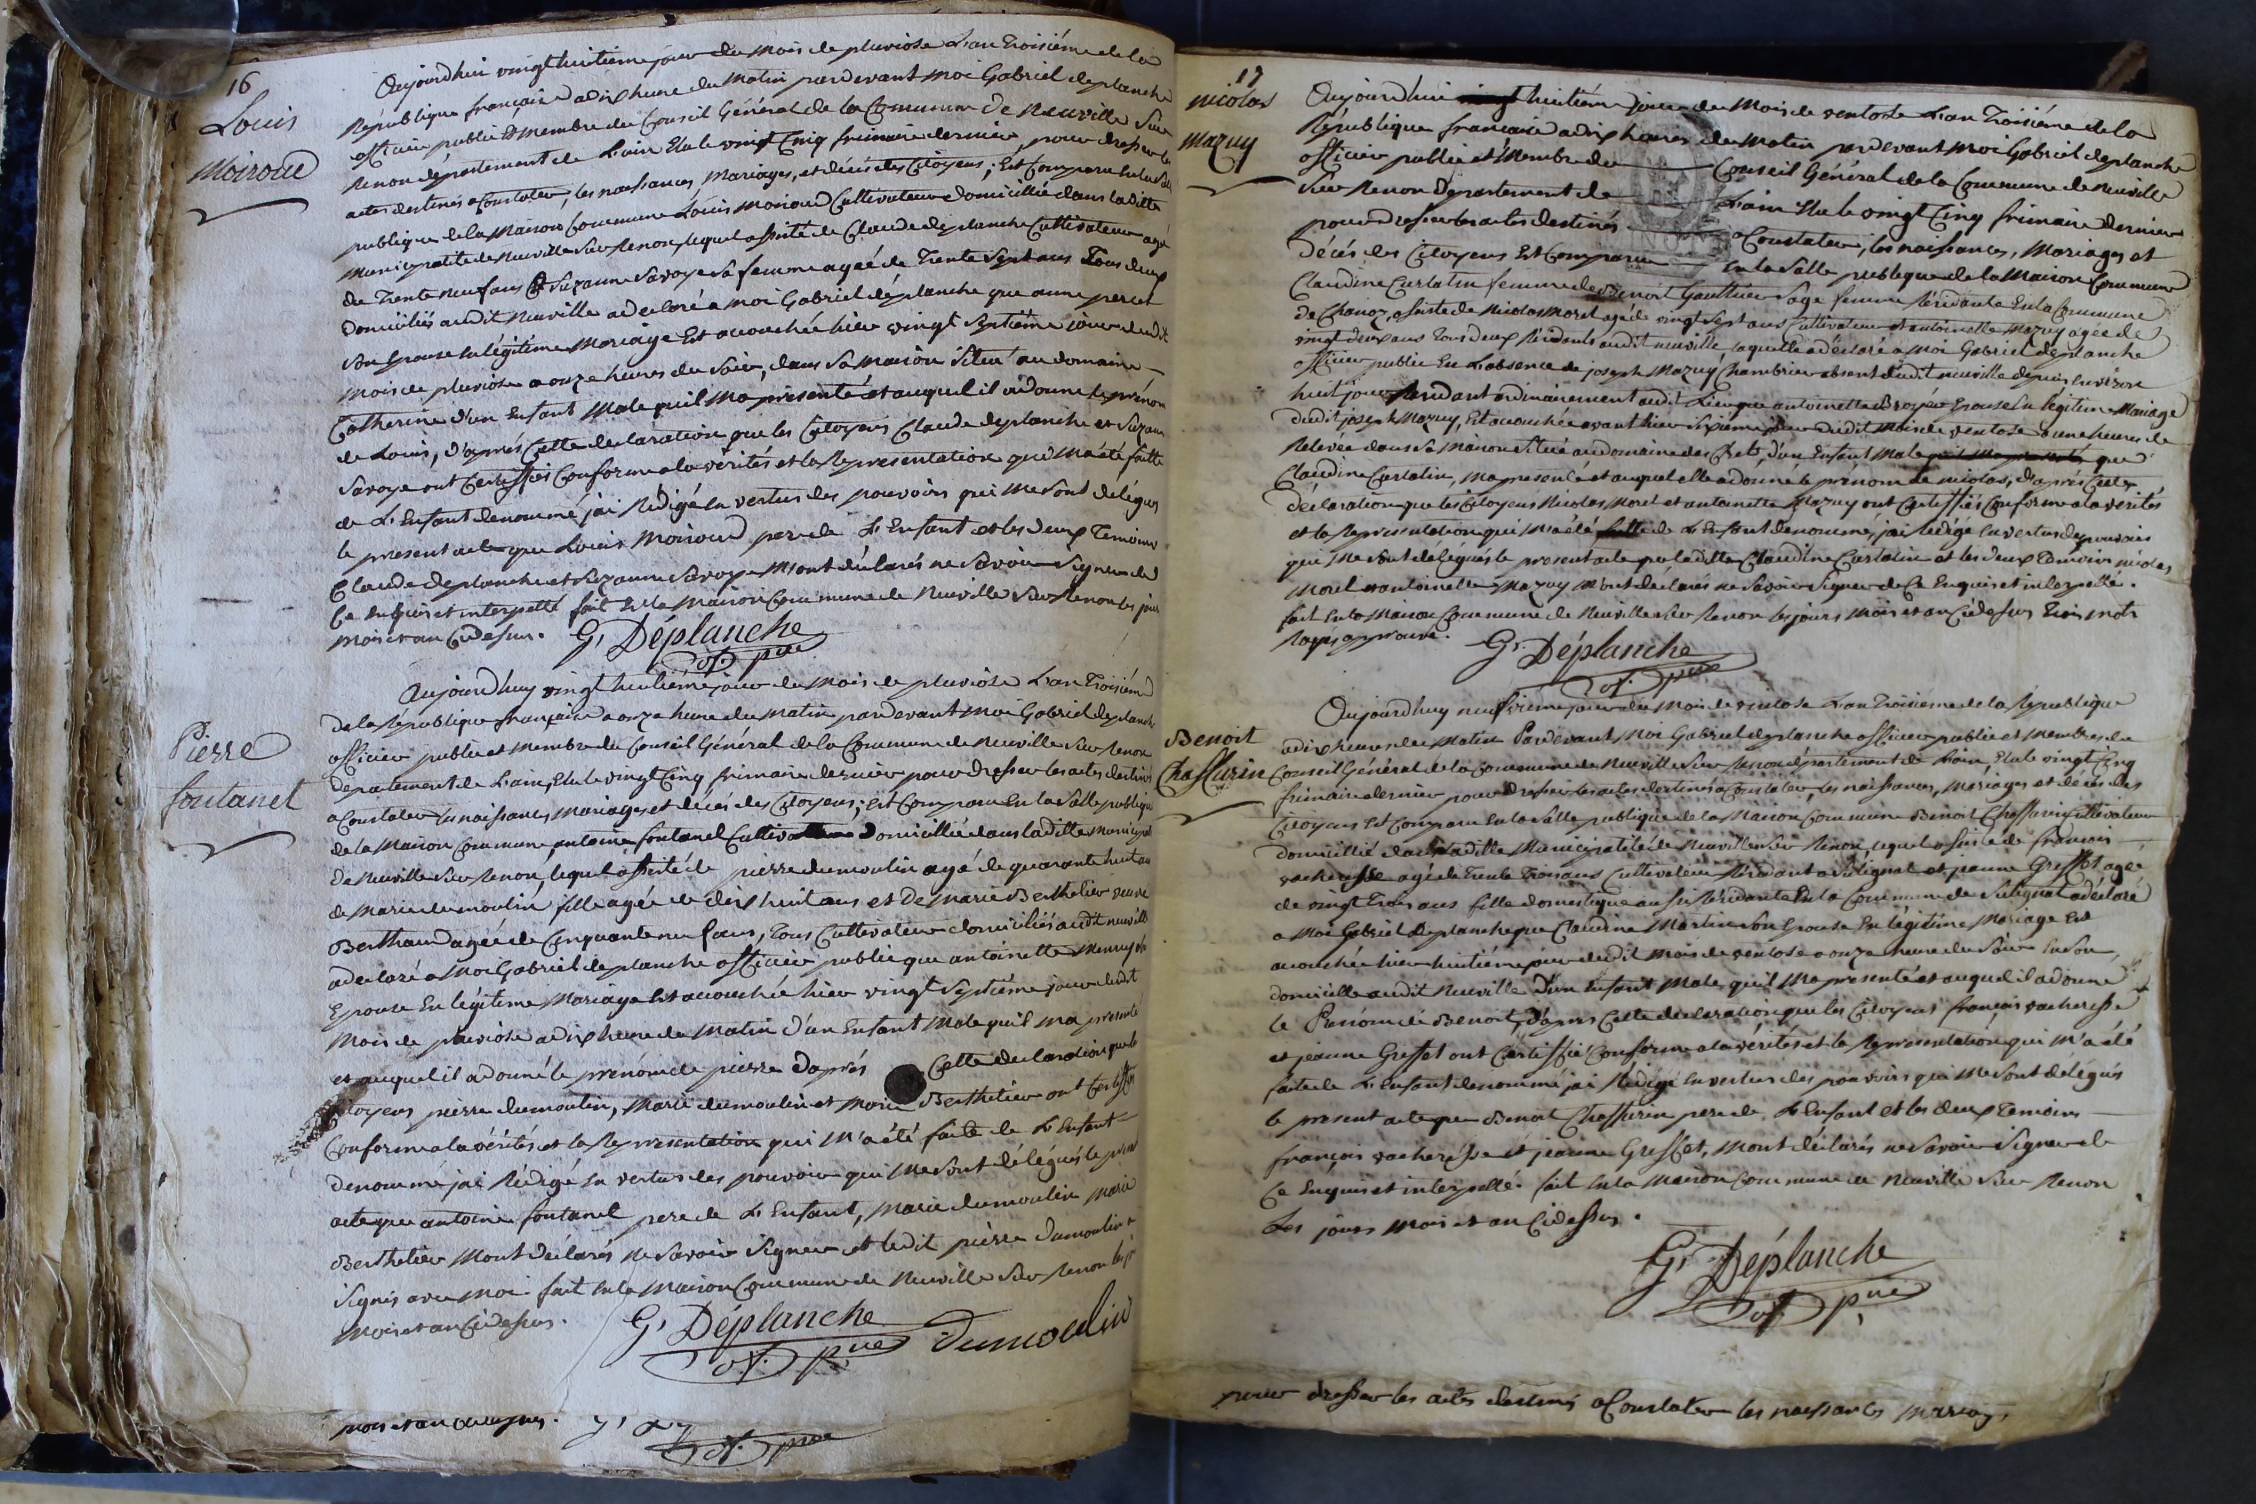 16
Louis
Moiroud
Aujourdhui vingt huitieme jour du mois de pluviose L'an Troisiéme de la
République française a dix heure du matin pardevant moi Gabriel deplanche
officier public et membre du Conseil Général de la Commune de Neuville sur
Renon département de L'ain Elu le vingt Cinq frimaire dernier, pour dresser les
actes destinés a Constater, les naissances, Mariages, et décés des Citoyens; Est Comparu En la Salle
publique de la Maison Commune Louis Moiroud Cultivateur domicillié dans la ditte
municipalité de Neuville sur Renon, lequel assisté de Claude deplanche Cultivateur agé
de Trente neuf ans et Suzanne Savoye sa femme ageé de Trente Sept ans Tous deux
domiciliés audit Neuville a declaré a moi Gabriel déplanche que anne perret
Son Epouse En légitime Mariage Est acouchée hier vingt Septiéme jour dudit
mois de pluviose a onze heures du Soir, dans Sa maison Situé au domaine
Catherin d'un Enfant Male quil ma presenté et auquel il a donné le prénom
de Louis, d'aprés Cette declaration que les Citoyens Claude deplanche et Suzanne
Savoye ont Certiffiés Conforme a la vérités et la Representation qui m'a été faitte
de L'Enfant denommé jai Rédigé En vertus des pouvoirs qui me Sont délégués
le present acte que Louis Moiroud pere de L'Enfant et les deux Temoins
Claude deplanche et Suzanne Savoye m'ont déclarés ne Savoir Signer de
Ce Enquis et interpellé fait En la Maison Commune de Neuville sur Renon les jour
mois et an Cidessus. G. Déplanche
of. pue
Pierre
fontanel
Aujourdhuy vingt huitiéme jour du Mois de pluviose L'an Troisiéme
de la République française a onze heure du matin pardevant Moi Gabriel deplanche
officier public et membre du Conseil Général de la Commune de Neuville sur Renon
département de L'ain, Elu le vingt Cinq frimaire dernier pour dresser les actes destinés
a Constater les naissances, mariages et décés des Citoyens; est Comparu En la Salle publique
de la Maison Commune antoine fontanel Cultivateur domicillié dans laditte municipal
de Neuville sur Renon, lequel assisté de pierre dumoulin agé de quarante huit ans
de Marie dumoulin fille agée de dix huit ans et De Marie Berthelier veuve
Berthaud agée de Cinquante neuf ans, Tous Cultivateur domiciliés audit neuville
a declaré a Moi Gabriel deplanche officier public que antoinette
Epouse En légitime Mariage Est acouchée hier vingt Septiéme jour dudit
Mois de pluviose a dix heure du Matin d'un Enfant Male quil ma presenté
et auquel il a donné le prénom de pierre D'aprés Cette declaration que les
Citoyens pierre dumoulin, Marie dumoulin et Marie Berthelier ont Certiffiés
Conforme a la vérités et la Representation qui m'a été faite de L'Enfant
denommé jai Rédigé En vertus des pouvoir qui me Sont délégués le present
acte que antoine fontanel pere de L'Enfant, Marie dumoulin Marie
Berthelier M'ont déclarés ne Savoir Signer et ledit pierre Dumoulin a
Signés avec Moi. fait En la Maison Commune de Neuville sur Renon les jour
Mois et an Cidessus.
G. Déplanche Dumoulin
of. pue
mois et an
of. pue
17
Nicolas
Mazuy
Aujourdhui huitiéme jour du Mois de ventose L'an Troisiéme de la
République française a dix heures du Matin pardevant Moi Gabriel deplanche
officier public et Membre du Conseil Général de la Commune de Neuville
Sur Renon Département de L'ain Elu le vingt Cinq frimaire dernier
pour dresser les actes destinés a Constater, les naissances, Mariages et
décés des Citoyens Est Comparue En la Salle publique de la Maison Commune
Claudine Curtatin femme de Benoit Gauthier Sage femme Résidante En la Commune
de Chanoz, assisté de Nicolas Morel agé de vingt Sept ans Cultivateur et antoinette Mazuy agée de
vingt deux ans Tous deux Résidants audit neuville, laquelle a déclaré a Moi Gabriel deplanche
officier public En L'absence de joseph Mazuy Chambrier absent dudit neuville depuis Environ
huit jours Résidant ordinairement audit Lieu que antoinette Broyer Epouse En légitime Mariage
dudit joseph Mazuy, Est acouchée avant hier Sixiéme jour dudit Mois de ventose a une heure de
Relevée dans Sa Maison Situé au domaine des Crets, d'un Enfant Male que
Claudine Curtatin, ma presenté et auquel elle a donné le prénom de nicolas, d'aprés Cette
déclaration que les Citoyens Nicolas Morel et antoinette Mazuy ont Certiffiés Conforme a la vérités
et la Representation qui m'a été faitte de L'Enfant denommé, jai Redigé En vertus des pouvoirs
qui Me Sont delegués le present acte que laditte Claudine Curtatin et les deux Temoins nicolas
Morel et antoinette Mazuy M'ont déclarés ne Savoir Signer de Ce Enquis et interpellé.
fait En la Maison Commune de Neuville Sur Renon les jours Mois et an Cidessus Trois mots
Rayés approuvé.
G. Déplanche
of. pue
Benoit
Chassurin
Aujourdhuy neufvieme jour du Mois de ventose L'an Troisieme de la Republique
a dix heures du Matin Pardevant Moi Gabriel deplanche officier public et Membre du
Conseil Général de la Commune de Neuville Sur Renon département de L'ain, Elu le vingt Cinq
frimaire dernier pour dresser les actes destinés a Constater, les naissances, Mariages et décés des
Citoyens Est Comparu En la Salle publique de la Maison Commune Benoit Chassurin Cultivateur
domicillié dans laditte Municipalité de Neuville Sur Renon, lequel assisté de francois
vacheresse agé de Trente Trois ans Cultivateur Résidant a Sulignat et jeanne Gresset agée
de vingt Trois ans fille domestique aussi Résidante En la Commune de Sulignat a déclaré
a Moi Gabriel Deplanche que Claudine Martin Son Epouse En légitime Mariage Est
acouchée hier huitiéme jour dudit mois de ventose a onze heure du Soir En Son
domicille audit Neuville D'un Enfant Male quil Ma presenté et auquel il a donné
le Prénom de Benoit, D'apres Cette declaration que les Citoyens françois vacheresse
et jeanne Gresset ont Certiffié Conforme a la vérités et la Representation qui m'a été
faite de L'Enfant denommé jai Rédigé En vertus des pouvoirs qui Me Sont délégués
le present acte que Benoit Chassurin pere de L'Enfant et les deux Temoins
françois vacheresse et jeanne Gresset, M'ont déclarés ne Savoir Signer de
Ce Enquis et interpellé. fait En la Maison Commune de Neuville Sur Renon
Les jours Mois et an Cidessus.
G. Déplanche
of. pue
pour dresser les actes destinés a Constater les naissances mariages